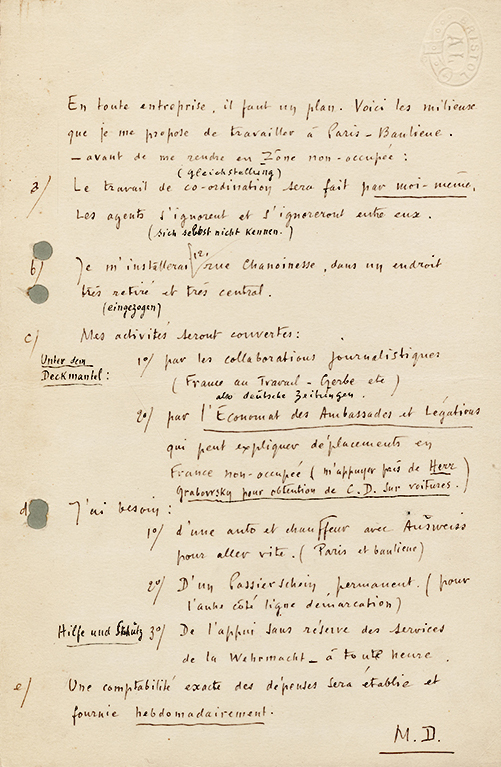 BRISTOL
En toute entreprise, il faut un plan. Voici les milieux
que je me propose de travailler à Paris-Banlieue.
— avant de me rendre en Zône non-occupée :
(Gleichstellung)
a/ Le travail de co-ordination sera fait par moi-même.
Les agents s'ignorent et s'ignoreront entre eux.
(sich selbst nicht kennen.)
b/ Je m'installerai 12, rue Chanoinesse, dans un endroit
très retiré et très central.
(eingezogen)
c/ Mes activités seront couvertes :
Unter dem
Deckmantel :
1º/ par les collaborations journalistiques
(France au Travail - Gerbe etc)
also deutsche Zeitungen.
2º/ par l'Économat des Ambassades et Légations
qui peut expliquer déplacements en
France non-occupée (m'appuyer près de Herr
Grabowsky pour obtention de C.D. sur voitures.)
d/ J'ai besoin :
1º/ d'une auto et chauffeur avec Ausweiss
pour aller vite. (Paris et banlieue)
2º/ D'un Passierschein, permanent. (pour
l'autre côté ligne demarcation)
Hilfe und Schutz 3º/ De l'appui sans réserve des services
de la Wehrmacht — à toute heure.
e/ Une comptabilité exacte des dépenses sera établie et
fournie hebdomadairement.
M.D.